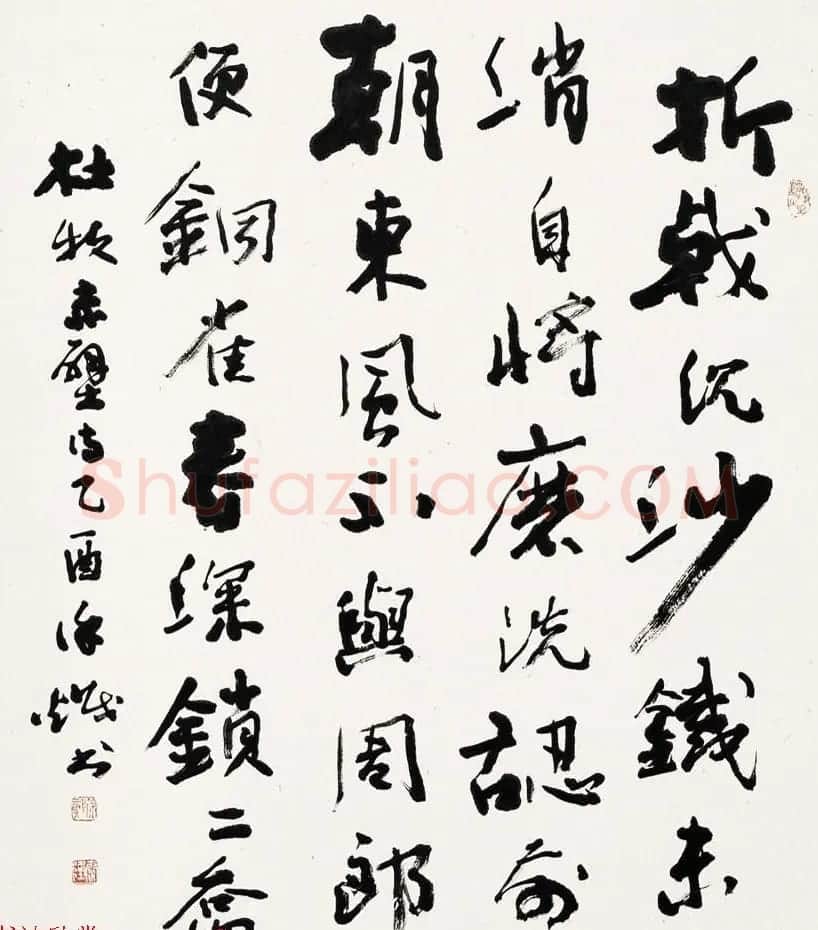 折戟沉沙鐵未
消自將磨洗認前
朝東風不與周郎
便銅雀春深鎖二喬
杜牧赤壁詩乙酉徐書
Shufaziliao.COM